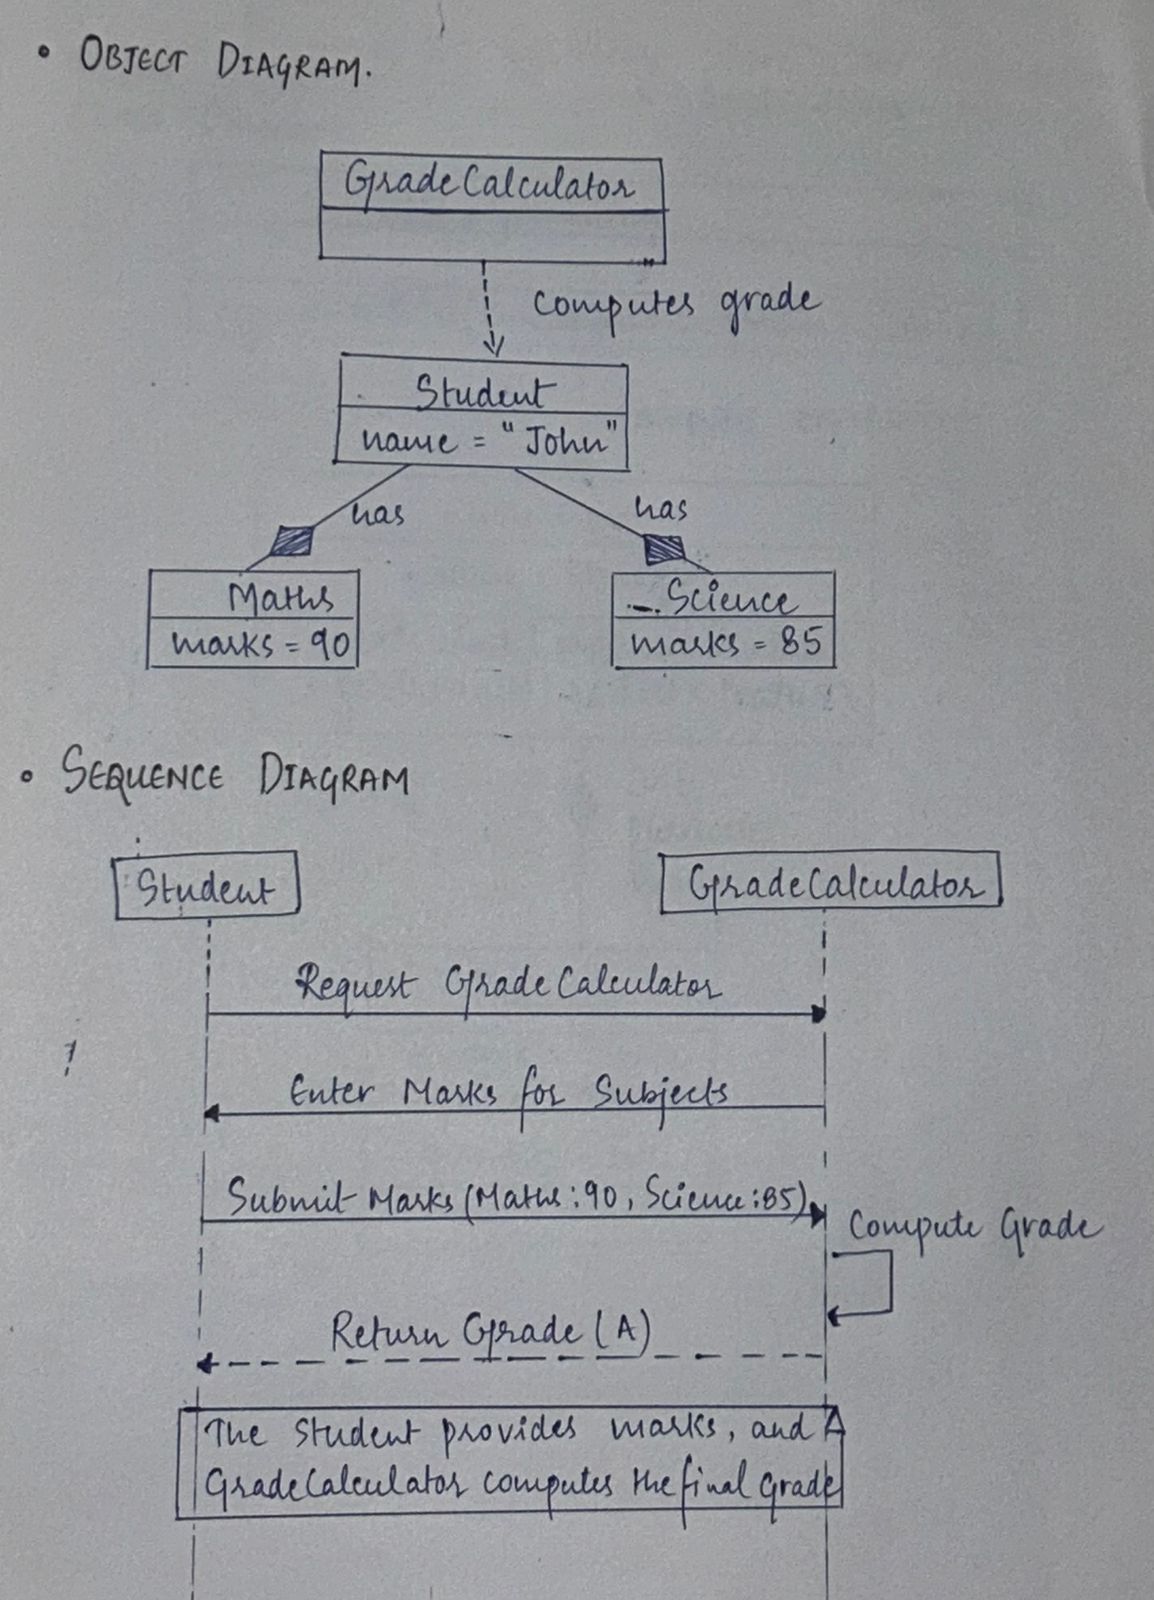 • OBJECT DIAGRAM.
GradeCalculator
computes grade
Student
name = "John"
has
has
Maths
marks = 90
Science
marks = 85
• SEQUENCE DIAGRAM
Student
GradeCalculator
Request GradeCalculator
Enter Marks for Subjects
Submit Marks (Maths:90, Science:85)
Compute Grade
Return Grade (A)
The Student provides marks, and
GradeCalculator computes the final Grade